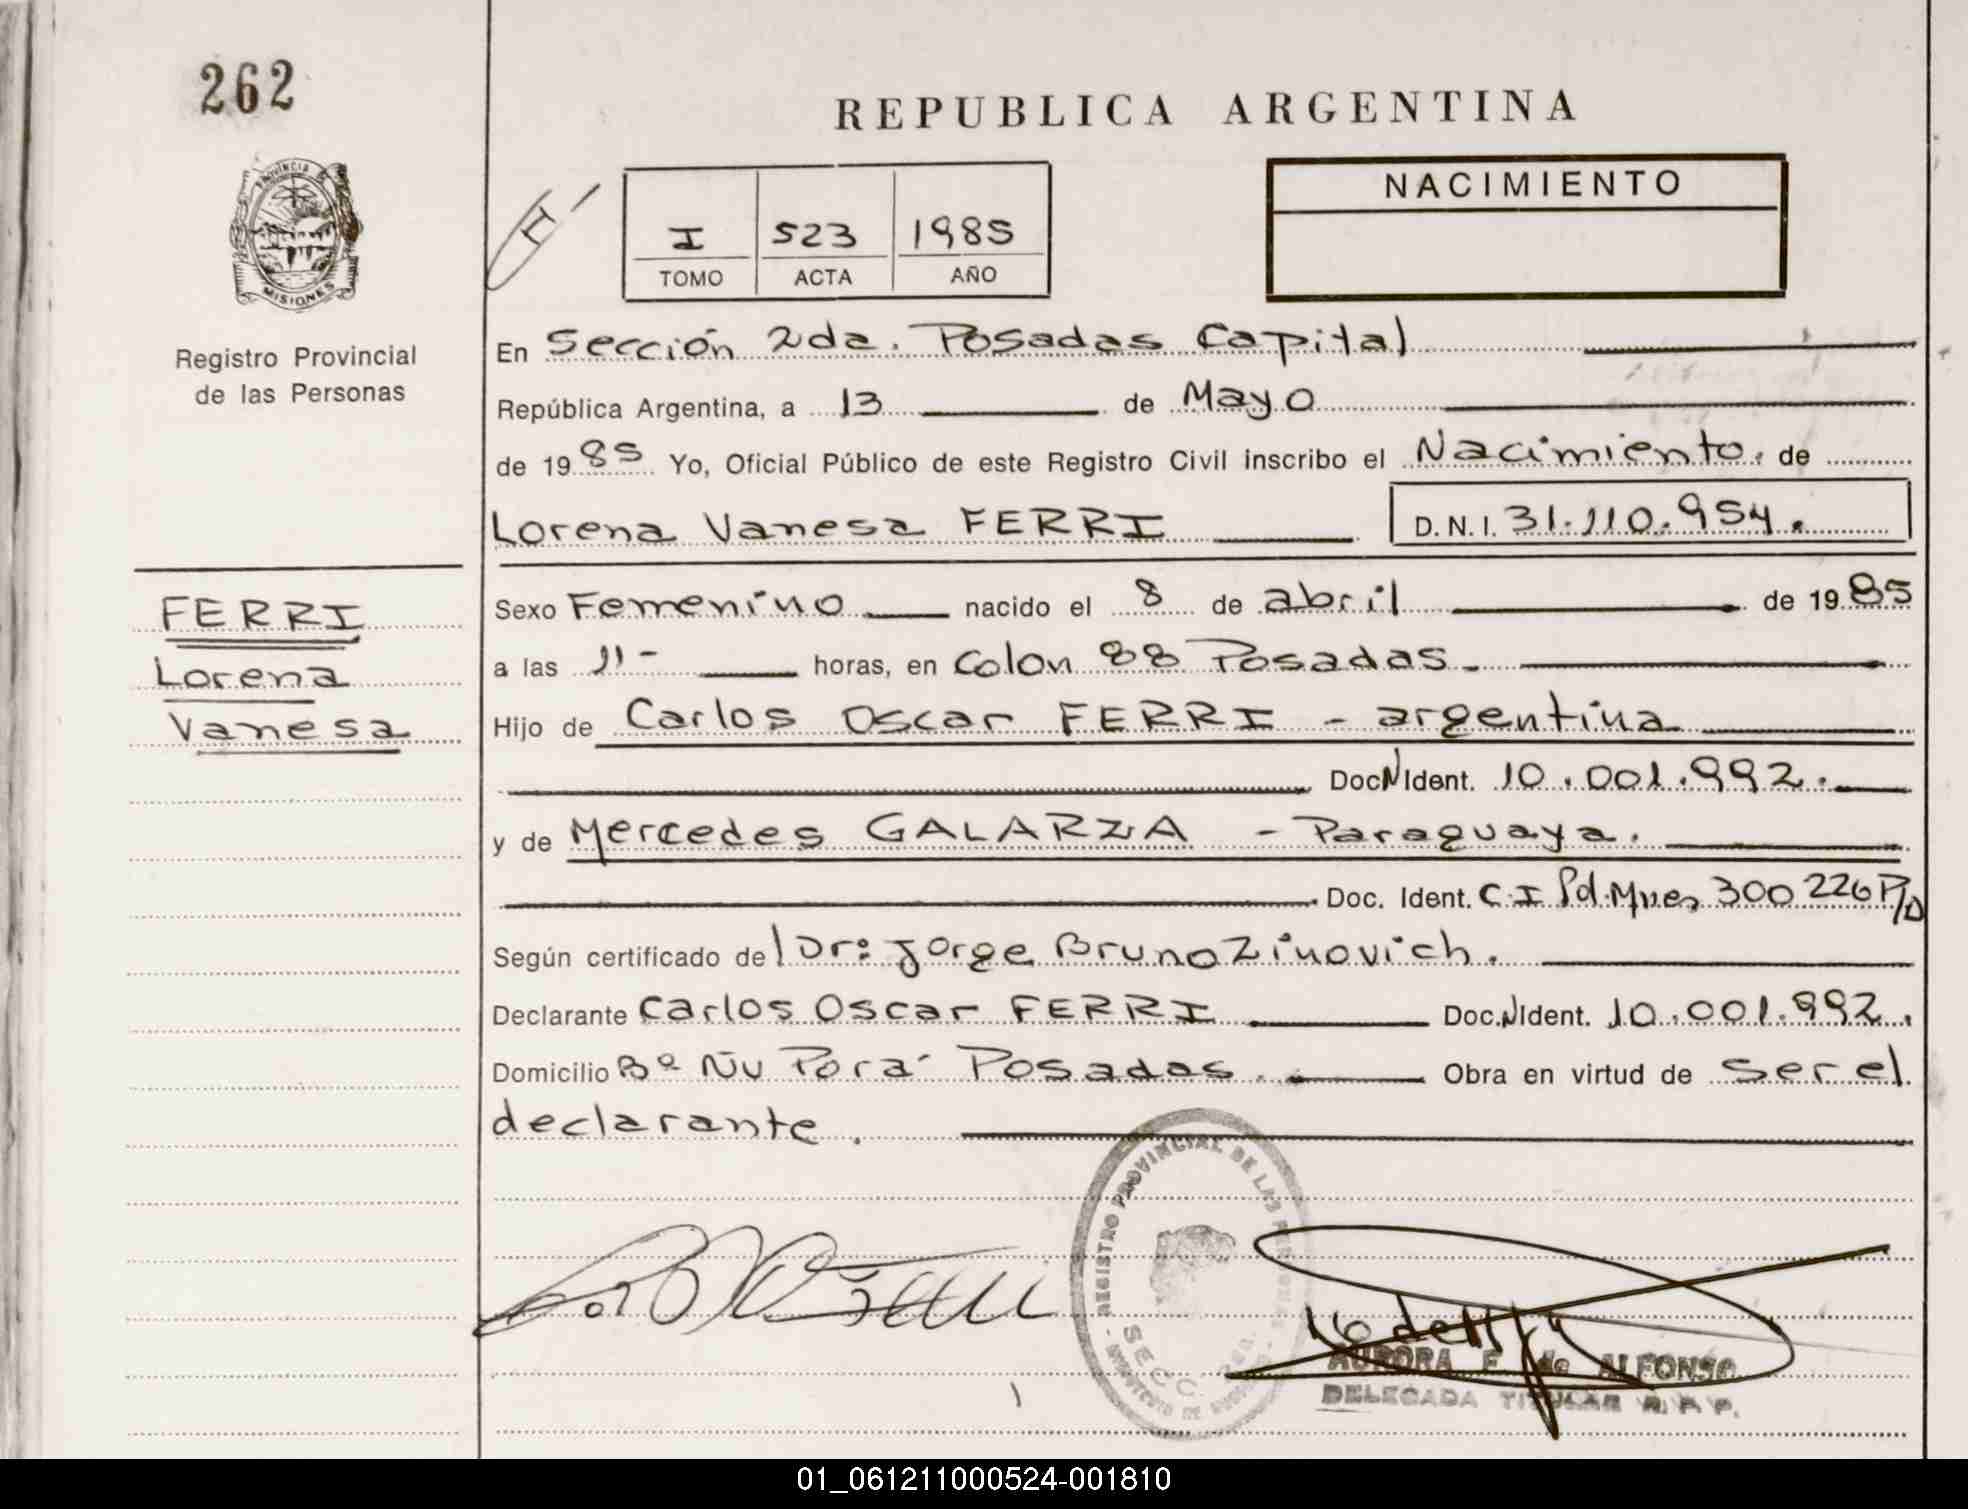 262
REPUBLICA ARGENTINA
PROVINCIA DE
MISIONES
Registro Provincial
de las Personas
I 523 1985
TOMO ACTA AÑO
NACIMIENTO
En Sección 2da. Posadas Capital
República Argentina, a 13 de Mayo
de 1985 Yo, Oficial Público de este Registro Civil inscribo el Nacimiento. de
Lorena Vanesa FERRI D.N.I. 31.110.954.
FERRI
Lorena
Vanesa
Sexo Femenino nacido el 8 de abril de 1985
a las 11- horas, en Colon 88 Posadas.
Hijo de Carlos Oscar FERRI - argentina
Doc N Ident. 10.001.992.
y de Mercedes GALARZA - Paraguaya.
Doc. Ident. C.I Pol. Mnes 300226 P/D
Según certificado del Dr: Jorge Bruno Zinovich.
Declarante Carlos Oscar FERRI Doc. N Ident. 10.001.992.
Domicilio Bº Ñu Porá Posadas. Obra en virtud de ser el
declarante.
REGISTRO PROVINCIAL DE LAS PERSONAS
SECC.
AURORA F. de ALFONSO
DELEGADA TITULAR R. P. P.
01_061211000524-001810